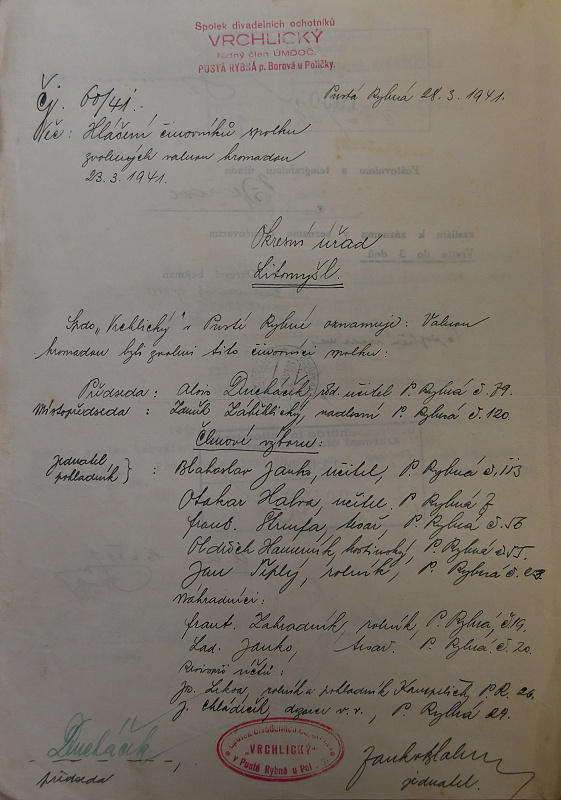 Spolek divadelních ochotníků
VRCHLICKÝ
řádný člen ÚMDOČ.
PUSTÁ RYBNÁ p. Borová u Poličky.
Čj. 60/41. Pustá Rybná 28. 3. 1941.
Věc: Hlášení činovníků spolku
zvolených valnou hromadou
23. 3. 1941.
Okresní úřad
Litomyšl.
Spdo „Vrchlický" v Pusté Rybné oznamuje: Valnou
hromadou byli zvoleni tito činovníci spolku:
Předseda: Alois Ducháčik, učitel P. Rybná č. 79.
Místopředseda: Zdeněk nadlesní P. Rybná č. 120.
Členové výboru:
Jednatel
pokladník } : Blahoslav Janko, učitel, P. Rybná č. 113
Otakar Halva, učitel. P. Rybná 7
frant. tesař, P. Rybná č. 56
Oldřich Hamerník, hostinský, P. Rybná č. 55.
Jan Teplý, rolník, P. Rybná č.
Náhradníci:
frant. Zahradník, rolník, P. Rybná, č. 19.
Lad. Janko, tesař. P. Rybná č. 20.
Revisoři účtů:
rolník a pokladník Kampeličk, P. R. 26.
J. v. v., P. Rybná 29.
Ducháčik,
předseda
Spolek divadelních
„VRCHLICKÝ"
v Pusté Rybné u Pol
Janko Blahosl
jednatel.